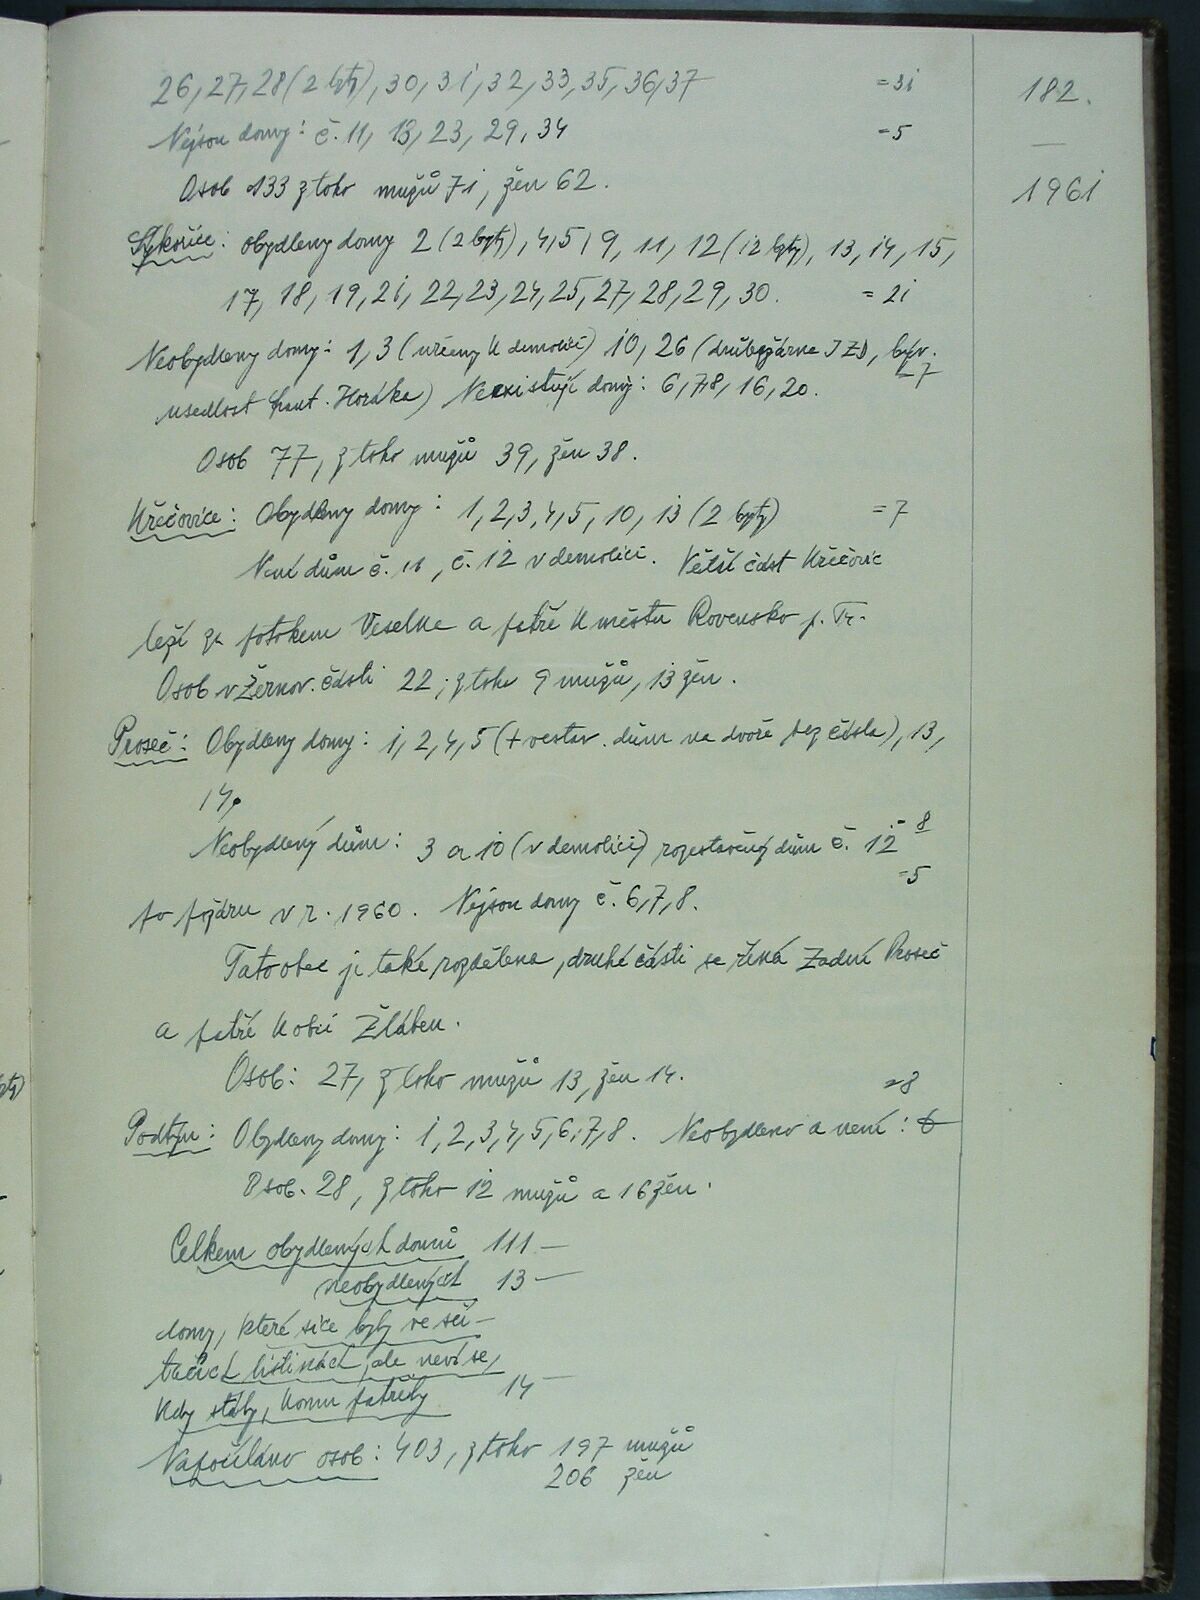 26, 27, 28 (2 byty), 30, 31, 32, 33, 35, 36, 37 =31
182.
Nejsou domy: č. 11, 18, 23, 29, 34 =5
—
Osob 133 z toho mužů 71, žen 62.
1961
Sýkořice: obydleny domy 2 (2 byty), 4, 5, 9, 11, 12 (2 byty), 13, 14, 15,
17, 18, 19, 21, 22, 23, 24, 25, 27, 28, 29, 30. = 21
Neobydleny domy: 1, 3 (určeny k demolici) 10, 26 (drůbežárna JZD, býv.
=7
usedlost Horáka) Neexistují domy: 6, 7, 8, 16, 20.
Osob 77, z toho mužů 39, žen 38.
Křečovice: Obydleny domy: 1, 2, 3, 4, 5, 10, 13 (2 byty) =7
Není dům č. 11, č. 12 v demolici. Větší část Křečovic
leží za potokem Veselka a patří k městu Rovensko p. Tr.
Osob v Žernov. části 22, z toho 9 mužů, 13 žen.
Proseč: Obydleny domy: 1, 2, 4, 5 (+ vestav. dům na dvoře bez čísla), 13,
14.
= 8
Neobydlený dům: 3 a 10 (v demolici) rozestavěný dům č. 12
=5
po požáru v r. 1960. Nejsou domy č. 6, 7, 8.
Tato obec je také rozdělena, druhé části se říká Zadní Proseč
a patří k obci Žlábek.
Osob: 27, z toho mužů 13, žen 14.
=8
Podtýn: Obydleny domy: 1, 2, 3, 4, 5, 6, 7, 8. Neobydleno a není: 0
Osob. 28, z toho 12 mužů a 16 žen.
Celkem obydlených domů 111 —
neobydlených 13 —
domy, které sice byly ve sčí-
tacích listinách, ale neví se,
kdy stály, komu patřily 14 —
Napočítáno osob: 403, z toho 197 mužů
206 žen